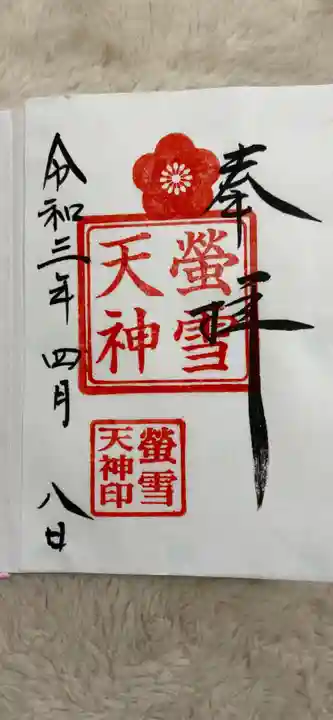 奉拝
螢雪
天神
螢雪
天神印
令和三年四月八日